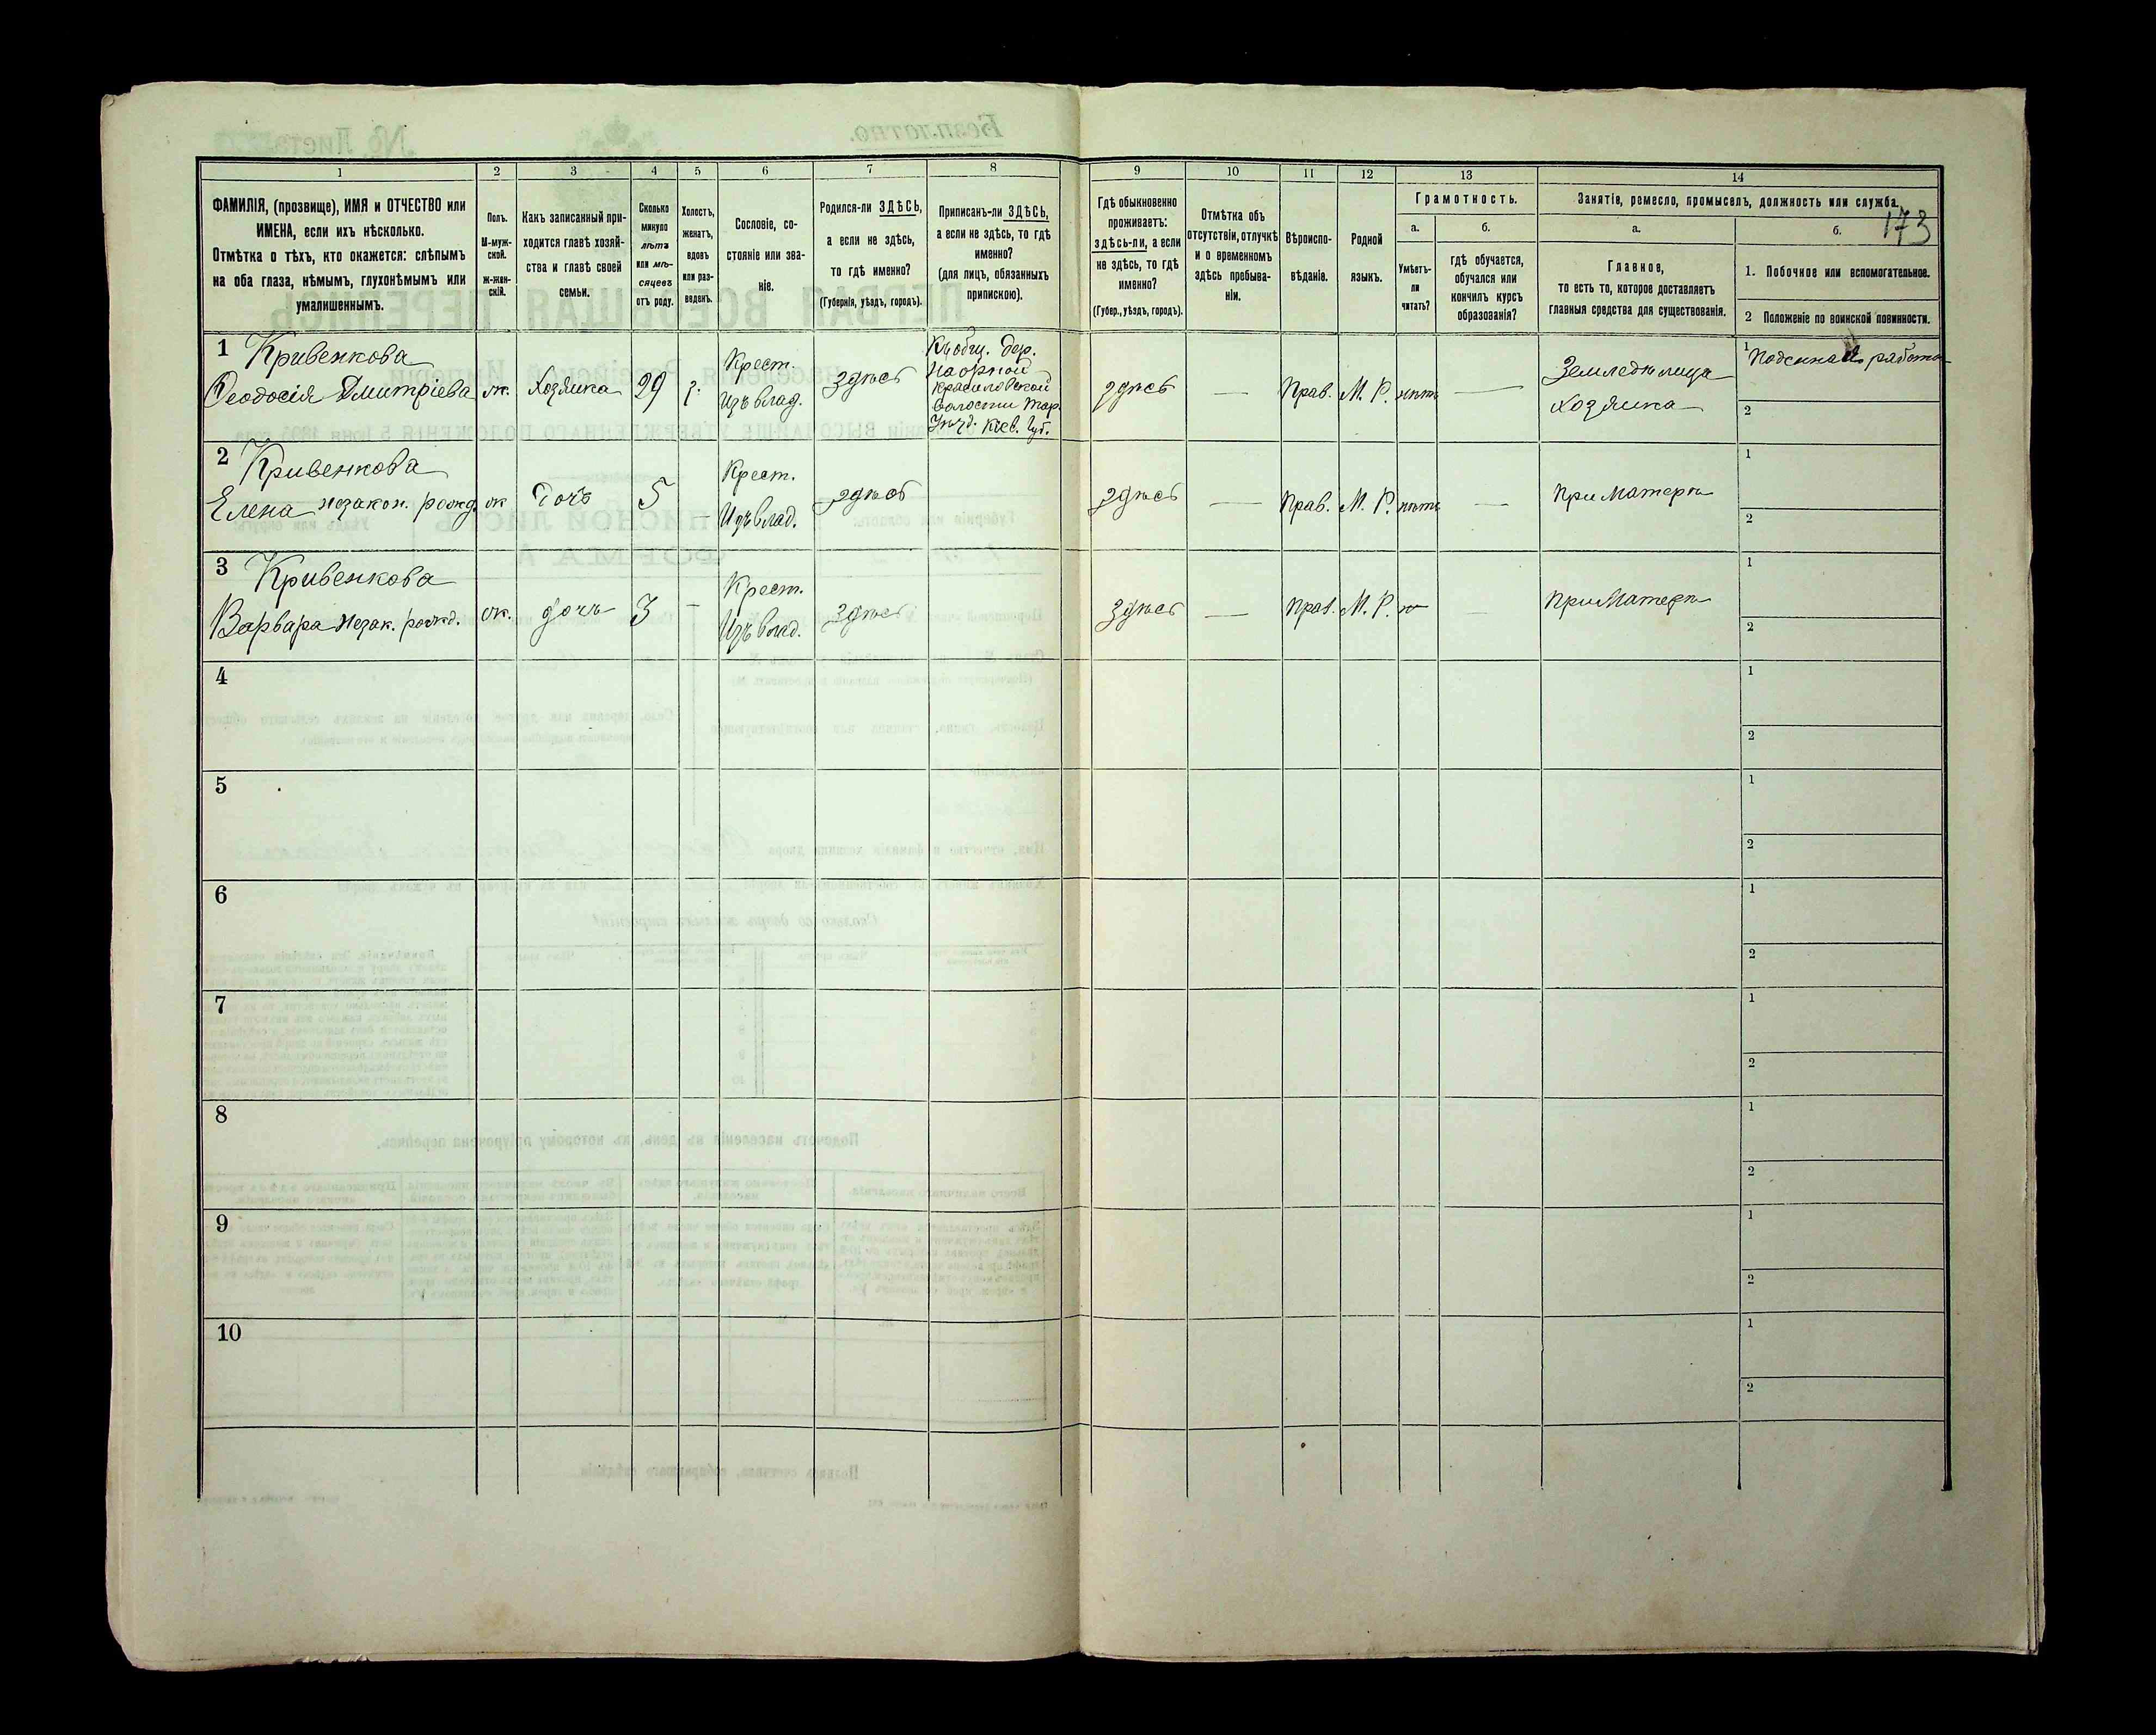 173
1
2
3
4
5
6
7
8
9
10
11
12
13
14
ФАМИЛІЯ, (прозвище), ИМЯ и ОТЧЕСТВО или
ИМЕНА, если ихъ нѣсколько.
Отмѣтка о тѣхъ, кто окажется: слѣпымъ
на оба глаза, нѣмымъ, глухонѣмымъ или
умалишеннымъ.
Полъ.
М-муж-
ской.
ж-жен-
скій.
Какъ записанный при-
ходится главѣ хозяй-
ства и главѣ своей
семьи.
Сколько
минуло
лѣтъ
или мѣ-
сяцевъ
отъ роду.
Холостъ,
женатъ,
вдовъ
или раз-
веденъ.
Сословіе, со-
стояніе или зва-
ніе.
Родился-ли ЗДѢСЬ,
а если не здѣсь,
то гдѣ именно?
(Губернія, уѣздъ, городъ).
Приписанъ-ли ЗДѢСЬ,
а если не здѣсь, то гдѣ
именно?
(для лицъ, обязанныхъ
припискою).
Гдѣ обыкновенно
проживаетъ:
здѣсь-ли, а если
не здѣсь, то гдѣ
именно?
(Губер., уѣздъ, городъ).
Отмѣтка объ
отсутствіи, отлучкѣ
и о временномъ
здѣсь пребыва-
ніи.
Вѣроиспо-
вѣданіе.
Родной
языкъ.
Грамотность.
а.
б.
Умѣетъ-
ли
читать?
гдѣ обучается,
обучался или
кончилъ курсъ
образованія?
Занятіе, ремесло, промыселъ, должность или служба.
а.
б.
Главное,
то есть то, которое доставляетъ
главныя средства для существованія.
1. Побочное или вспомогательное.
2 Положеніе по воинской повинности.
1 Кривенкова
Ѳеодосія Дмитріева
ж.
Хозяйка
29
Крест.
Изъ влад.
Здѣсь
Къ общ. дер.
волости Тар.
Уѣзд. Кіев. Губ.
здѣсь
—
Прав.
М. Р.
нѣтъ
—
Земледѣлица
Хозяйка
1 Поденная работа
2
2 Кривенкова
Елена незакон. рожд.
ж
дочь
5
—
Крест.
Изъ влад.
здѣсь
здѣсь
—
Прав.
М. Р.
нѣтъ
—
При Матери
1
2
3 Кривенкова
Варвара незак. рожд.
ж.
дочь
3
—
Крест.
Изъ влад.
Здѣсь
Здѣсь
—
Прав.
М. Р.
—
При Матери
1
2
4
1
2
5
1
2
6
1
2
7
1
2
8
1
2
9
1
2
10
1
2